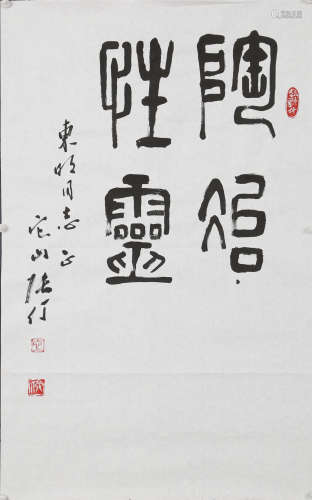 陶冶
性靈
東明同志正
它山張仃